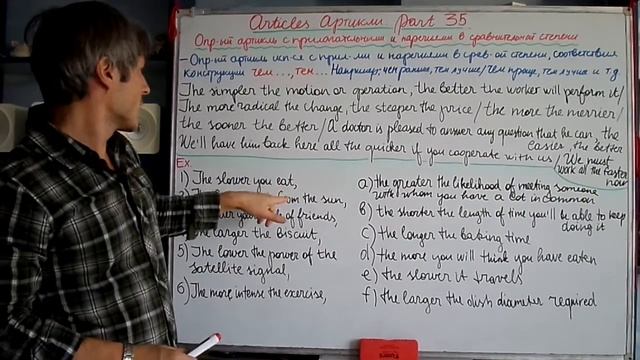 Articles Артикли Part 35
Опр-ый артикль с прилагательными и наречиями в сравнительной степени
– Опр-ый артикль исп-ся с прил-ми и наречиями в срав-ой степени, соответствия
конструкции чем ..., тем... Например: чем раньше, тем лучше/чем проще, тем лучше и т.д.
The simpler the motion or operation, the better the worker will perform it/
The more radical the change, the steeper the price/the more the merrier/
the sooner the better/A doctor is pleased to answer any question that he can, the
easier, the better
We'll have him back here all the quicker if you cooperate with us/We must
work all the faster
now
Ex.
1) The slower you eat,
from the sun,
of friends,
larger the biscuit,
5) The lower the power of the
satellite signal,
6) The more intense the exercise,
a) the greater the likelihood of meeting someone
with whom you have a lot in common
b) the shorter the length of time you'll be able to keep
doing it
c) the longer the baking time
d) the more you will think you have eaten
e) the slower it travels
f) the larger the dish diameter required